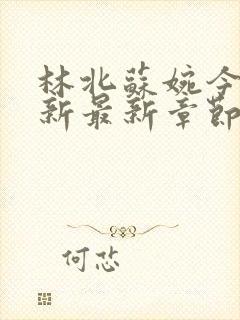 林北蘇婉今
新最新章節
何忿